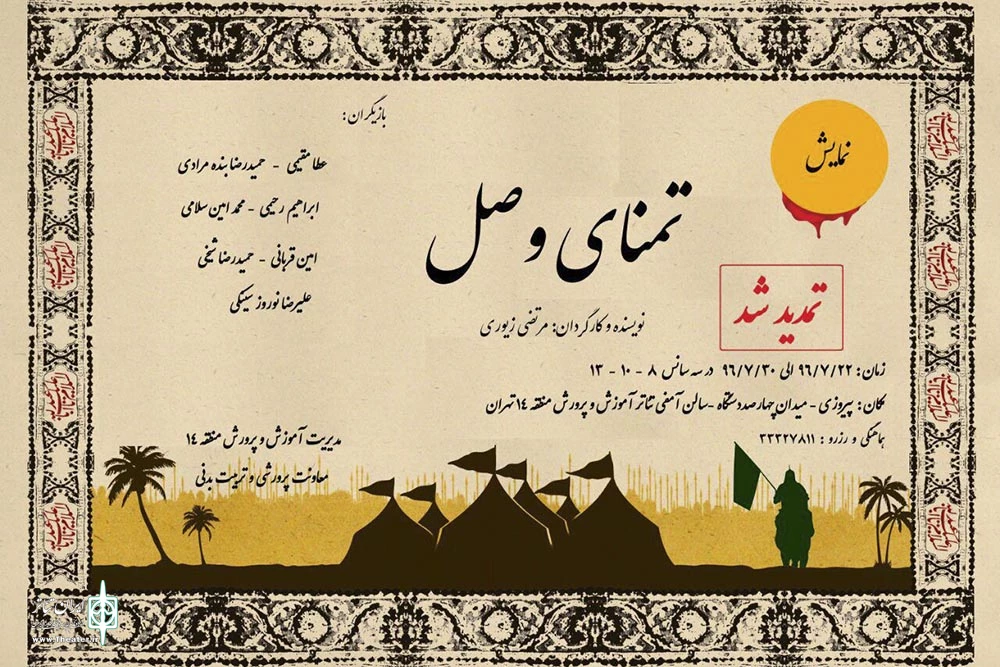 نمایش
تمنای وصل
تمدید شد
نویسنده و کارگردان: مرتضی زیوری
بازیگران:
عطا مقیمی - حمیدرضا بنده مرادی
ابراهیم رحیمی - محمد امین سلامی
امین قربانی - حمیدرضا شیخی
علیرضا نوروز سینکی
زمان: ۹۶/۷/۲۲ الی ۹۶/۷/۳۰ در سه سانس ۸ - ۱۰ - ۱۳
مکان: پیروزی - میدان چهارصد دستگاه - سالن آمفی تئاتر آموزش و پرورش منطقه ۱۴ تهران
هماهنگی و رزرو : ۳۳۳۲۷۸۱۱
مدیریت آموزش و پرورش منطقه ۱۴
معاونت پرورشی و تربیت بدنی
ایران تئاتر
www.theater.ir